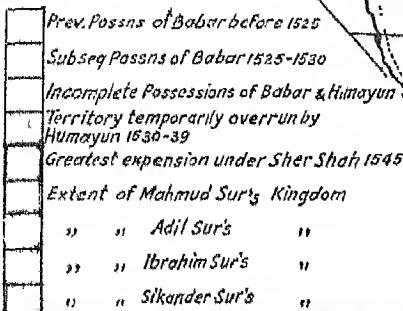 Prev. Possns of Babar before 1525
Subseq Possns of Babar 1525-1530
Incomplete Possessions of Babar & Humayun
Territory temporarily overrun by
Humayun 1530-39
Greatest expension under Sher Shah 1545
Extent of Mahmud Sur's Kingdom
" " Adil Sur's "
" " Ibrahim Sur's "
" " Sikander Sur's "